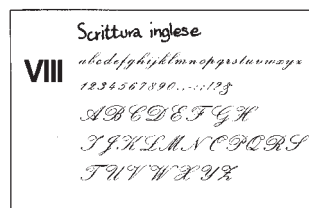 Scrittura inglese
VIII
abcdefghijklmnopqrstuvwxyz
1234567890.,-:;!?&
ABCDEFGH
IJKLMNOPQRS
TUVWXYZ